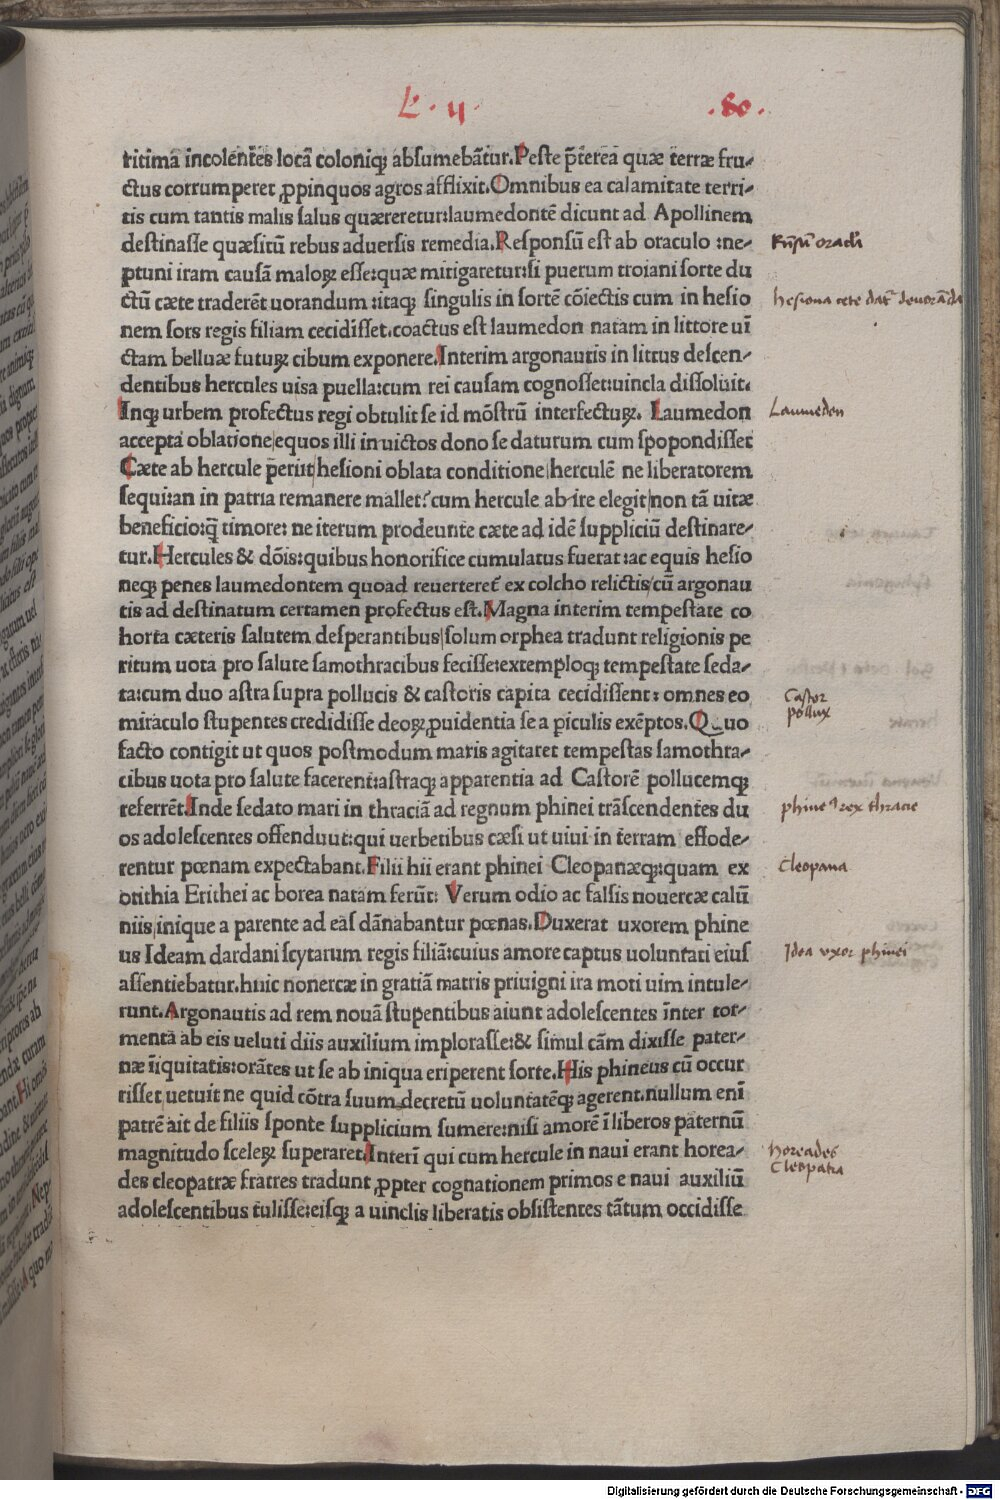 L. 4.
.80.
ritimã incolentes locã coloniqꝫ absumebãtur.Peste p̃terea quæ terræ fru-
ctus corrumperet ꝓpinquos agros afflixit.Omnibus ea calamitate terri-
tis cum tantis malis salus quærereretur:laumedontẽ dicunt ad Apollinem
destinasse quæsitũ rebus aduersis remedia.Responsũ est ab oraculo :ne-
ptuni iram causã maloꝝ esse:quæ mitigaretur:si puerum troiani sorte du
ctũ cæte traderẽt uorandum :itaqꝫ singulis in sortẽ cõiectis cum in hesio
nem sors regis filiam cecidisset.coactus est laumedon natam in littore uĩ
ctam belluæ futuꝝ cibum exponere.Interim argonautis in littus descen-
dentibus hercules uisa puella:cum rei causam cognosset:uincla dissoluit.
Inqꝫ urbem profectus regi obtulit se id mõstrũ interfectuꝝ. Laumedon
accepta oblatione equos illi inuictos dono se daturum cum spopondisset
Cæte ab hercule periit hesioni oblata conditione herculẽ ne liberatorem
sequi:an in patria remanere mallet? cum hercule abire elegit non tã uitæ
beneficio:ꝙ̃ timore: ne iterum prodeunte cæte ad idẽ suppliciũ destinare-
tur.Hercules & dõis:quibus honorifice cumulatus fuerat :ac equis hesio
neqꝫ penes laumedontem quoad reuerteret̃ ex colcho relictis cũ argonau
tis ad destinatum certamen profectus est.Magna interim tempestate co
horta cæteris salutem desperantibus solum orphea tradunt religionis pe
ritum uota pro salute samothracibus fecisse:extemploqꝫ tempestate seda-
ta:cum duo astra supra pollucis & castoris capita cecidissent: omnes eo
miraculo stupentes credidisse deoꝝ ꝓuidentia se a piculis exẽptos.Quo
facto contigit ut quos postmodum maris agitaret tempestas samothra-
cibus uota pro salute facerent:astraqꝫ apparentia ad Castorẽ pollucemqꝫ
referrẽt.Inde sedato mari in thraciã ad regnum phinei trãscendentes du
os adolescentes offenduut:qui uerberibus cæsi ut uiui in terram effode-
rentur pœnam expectabant.Filii hii erant phinei Cleopanæqꝫ:quam ex
orithia Erithei ac borea natam ferũt: Verum odio ac falsis nouercæ calũ
niis inique a parente ad eas dãnabantur pœnas.Duxerat uxorem phine
us Ideam dardani scytarum regis filiã:cuius amore captus uoluntati eius
assentiebatur.huic nonercæ in gratiã matris priuigni ira moti uim intule-
runt.Argonautis ad rem nouã stupentibus aiunt adolescentes inter tor-
menta ab eis ueluti diis auxilium implorasse:& simul cãm dixisse pater-
næ ĩiquitatis:orãtes ut se ab iniqua eriperent sorte.His phineus cũ occur
risset uetuit ne quid cõtra suum decretũ uoluntatẽqꝫ agerent.nullum enĩ
patrẽ ait de filiis sponte supplicium sumere:nisi amorẽ ĩ liberos paternũ
magnitudo sceleꝝ superaret.Interĩ qui cum hercule in naui erant horea-
des cleopatræ fratres tradunt ꝓpter cognationem primos e naui auxiliũ
adolescentibus tulisse:eisqꝫ a uinclis liberatis obsistentes tãtum occidisse
hesiona cete
Laumeden
Castor
pollux
phine rex thracie
Cleopana
Idea vxor phinei
horeades
Cleopatra
Digitalisierung gefördert durch die Deutsche Forschungsgemeinschaft - DFG